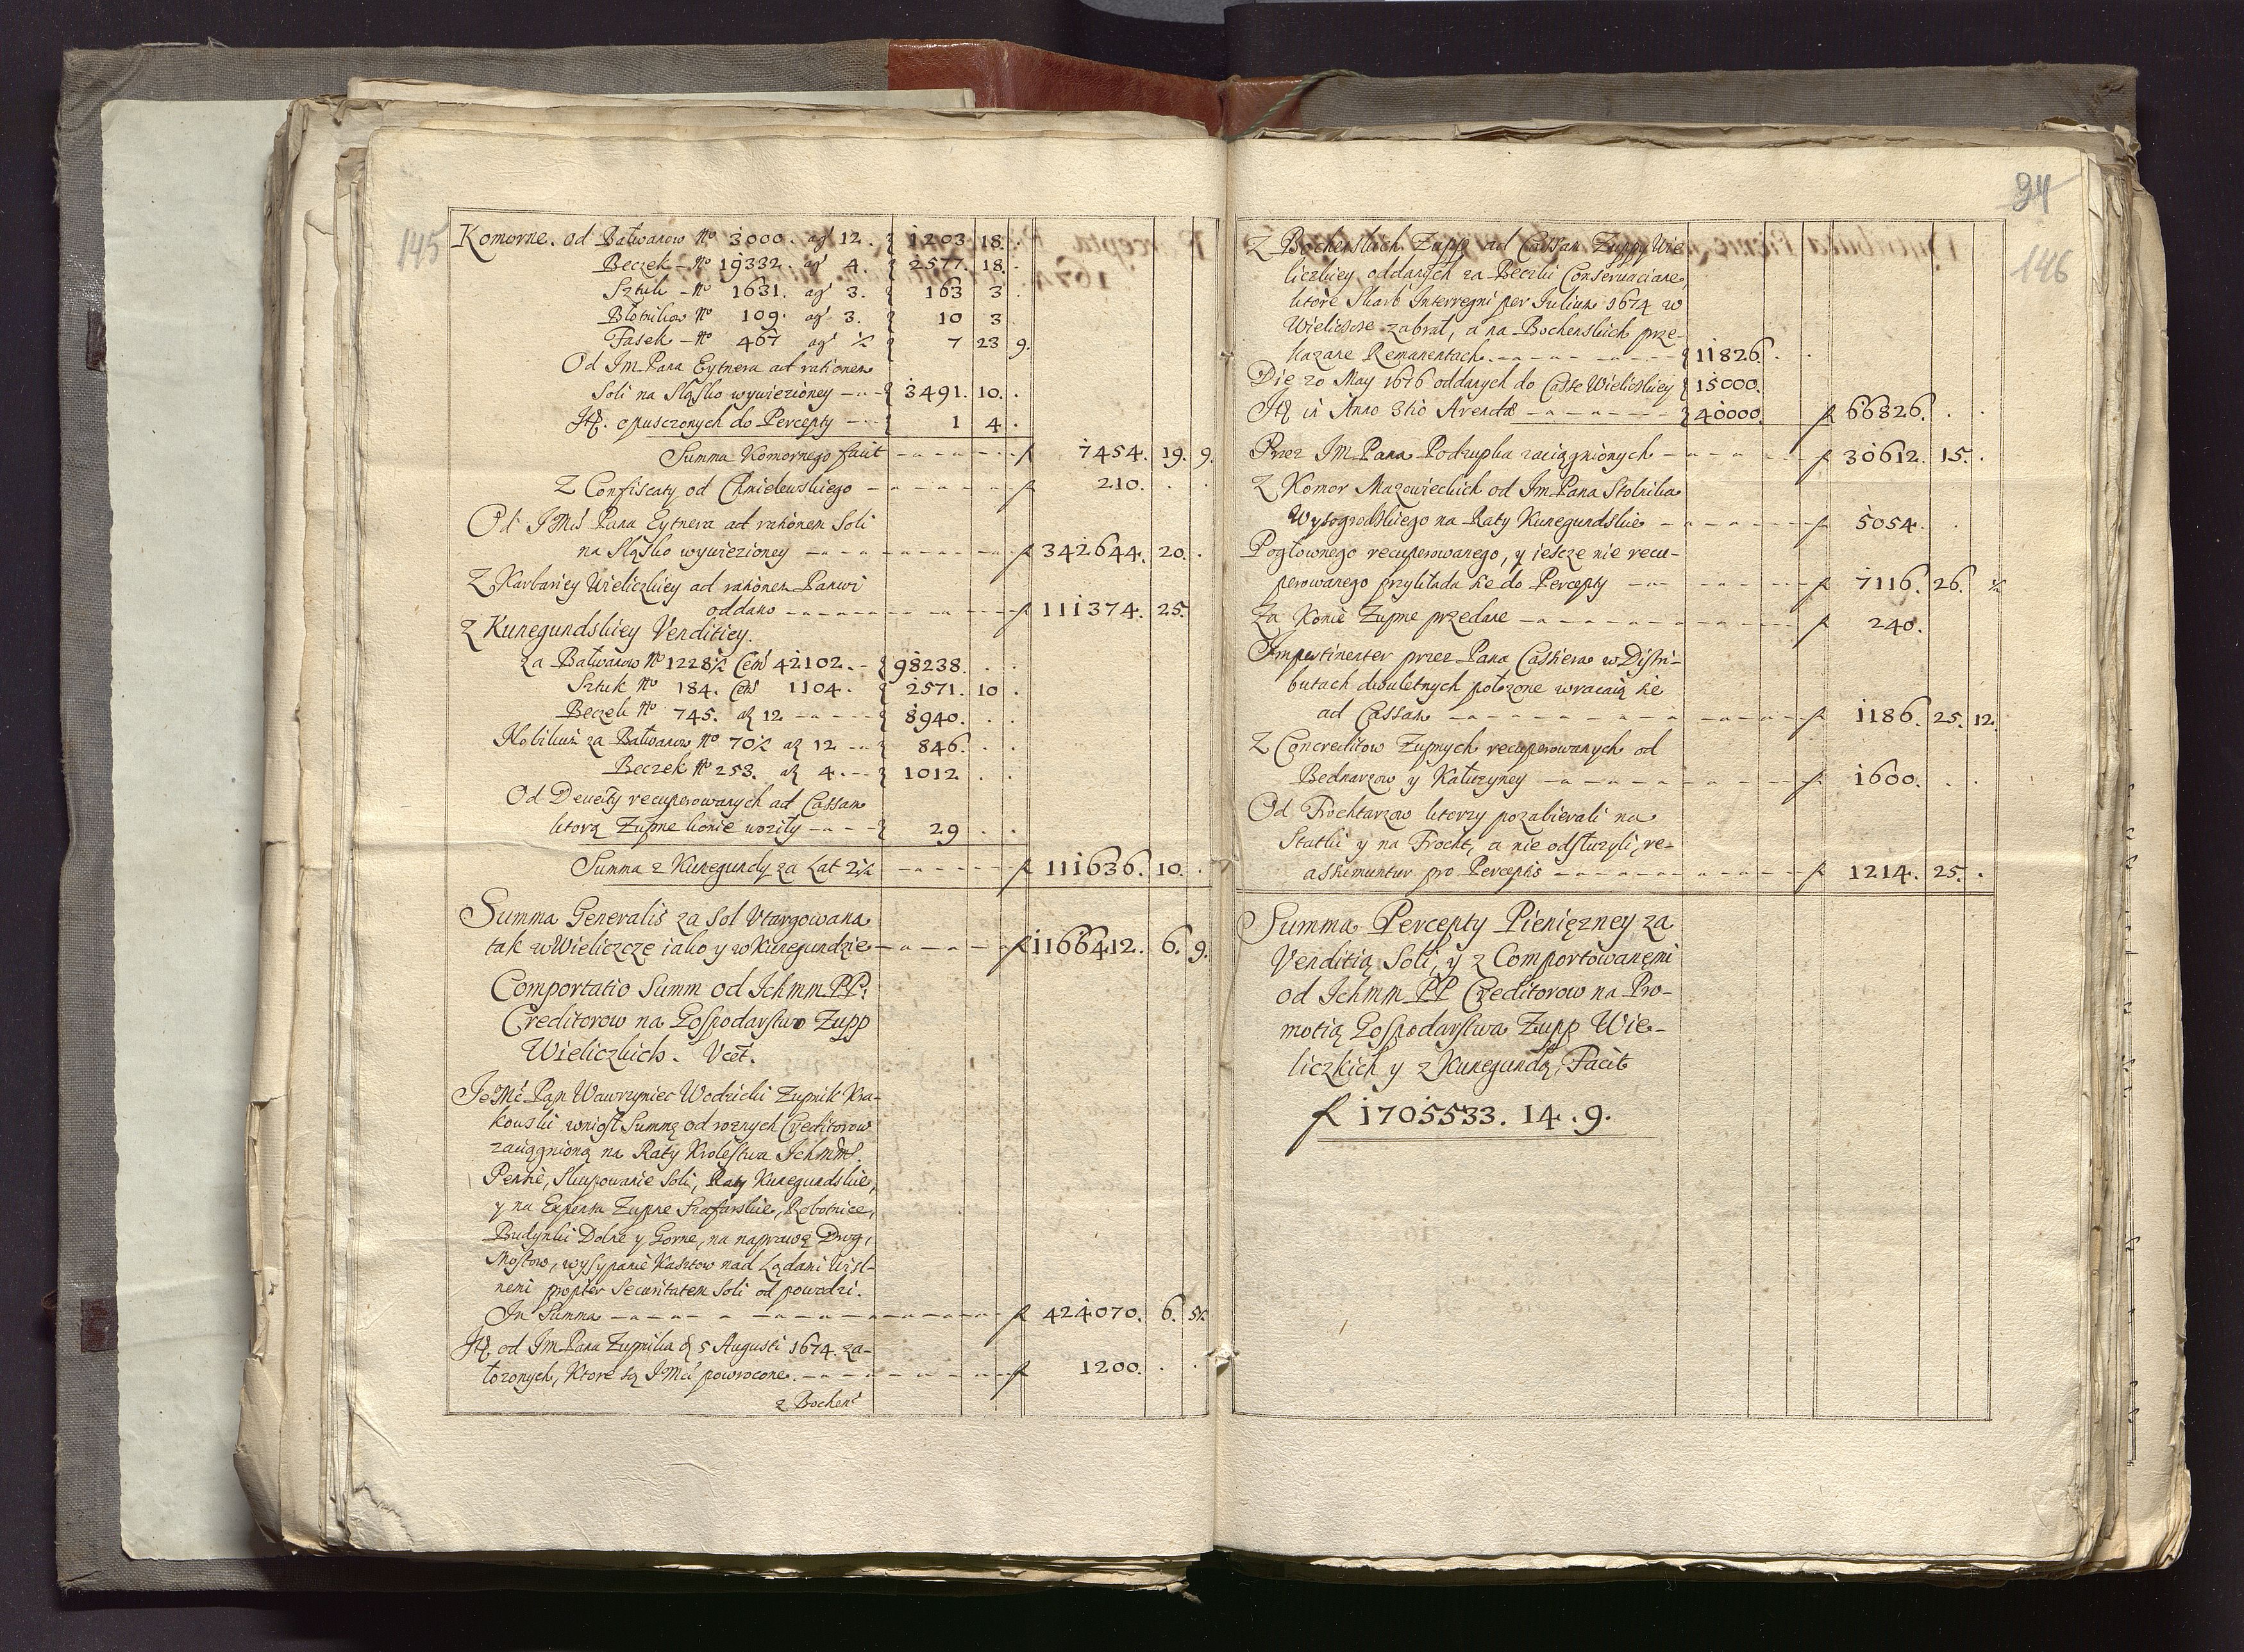 145
Komorne. od Bałwanow No 3000. ag 12. 1203 18 .
Beczek No 19332. ag 4. 2577. 18 .
Sztuk No 1631. ag 3. 163 3 .
Błotnikow No 109. ag 3. 10 3
Fasek No 467 ag ½ 7 23 9.
Od Jm Pana Eytnera ad rationem
Soli na Sląsko wywiezioney 3491. 10. .
It. opusczonych do Percepty 1 4 .
Summa Komornego facit f 7454. 19. 9.
Z Confiscaty od Chmielewskiego f 210. . .
Od JMci Pana Eytnera ad rationem Soli
na Sląsko wywiezioney f 342644. 20. .
Z Karbariey Wieliczkiey ad rationem Panwi
oddano f 111374. 25.
Z Kunegundskiey Venditiey.
za Bałwanow No 1228½ Cent 42102. 98238. . .
Sztuk No 184. Cent 1104. 2571. 10 .
Beczek No 745. a 12 8940. . .
Nobilium za Bałwanow No 70½ a 12 846. . .
Beczek No 253. a 4. 1012 . .
Od Deueity recuperowanych ad Cassam
ktorą Zupne konie woziły 29 . .
Summa z Kunegundy za Lat 2½ f 111636. 10. .
Summa Generalis za Sol Vtargowana
tak w Wieliczcze iako y w Kunegundzie f 1166412. 6. 9.
Comportatio Summ od Ichmm PP:
Creditorow na Gospodarstwo Zupp
Wieliczkich. Vcet.
JeMć Pan Wawrzyniec Wodzicki Zupnik Kra-
kowski wniosł Summę od roznych Creditorow
zaciągnioną na Raty Krolestwa Ichmms.
Pensie, Skupowanie Soli, Raty Kunegundskie,
y na Expensa Zupne Szafarskie, Robotnice,
Budynki Dolne y Gorne, na naprawę Drog,
Mostow, wysypanie Kasztow nad Lądami Wisl-
nemi propter Securitatem Soli od powodzi.
In Summa f 424070. 6. 5½
It. od Jm Pana Zupnika d 5 Augusti 1674. za-
łozonych, Ktore są JMci powrocone. f 1200. . .
z Bochen
94
146
Z Bochenskich Zupp ad Cassam Zuppy Wie
liczkiey oddanych za Beczki Conseruaciane,
ktore Skarb Interregni per Iulium 1674 w
Wieliczcze zabrał, a na Bochenskich prze-
kazane Remanentach. 11826 . .
Die 20 May 1676 oddanych do Casse Wielickiey 15000.
It. in Anno 3tio Arendæ 40000. f 66826. . .
Przez Jm Pana Podzupka zaciągnionych f 30612. 15. .
Z Komor Mazowieckich od Jm Pana Stolnika
Wyszogrodskiego na Raty Kunegundskie f 5054. .
Pogłownego recuperowanego, y iescze nie recu-
perowanego przykłada się do Percepty f 7116. 26. ½
Za Konie Zupne przedane f 240.
Impertinenter przez Pana Cassiera w Distri-
butach dwuletnych położone wracaią się
ad Cassam f 1186. 25. 12
Z Concreditow Zupnych recuperowanych od
Bednarzow y Kałuzyney f 1600. . .
Od Frochtarzow ktorzy pozabierali na
Statki y na Frocht, a nie odsłuzyli, re-
assumuntur pro Perceptis f 1214. 25. .
Summa Percepty Pieniężney za
Venditią Soli, y z Comportowanemi
od Ichmm PP Creditorow na Pro-
motią Gospodarstwa Zupp Wie-
liczkich y z Kunegundą, Facit
f 1705533. 14. 9.